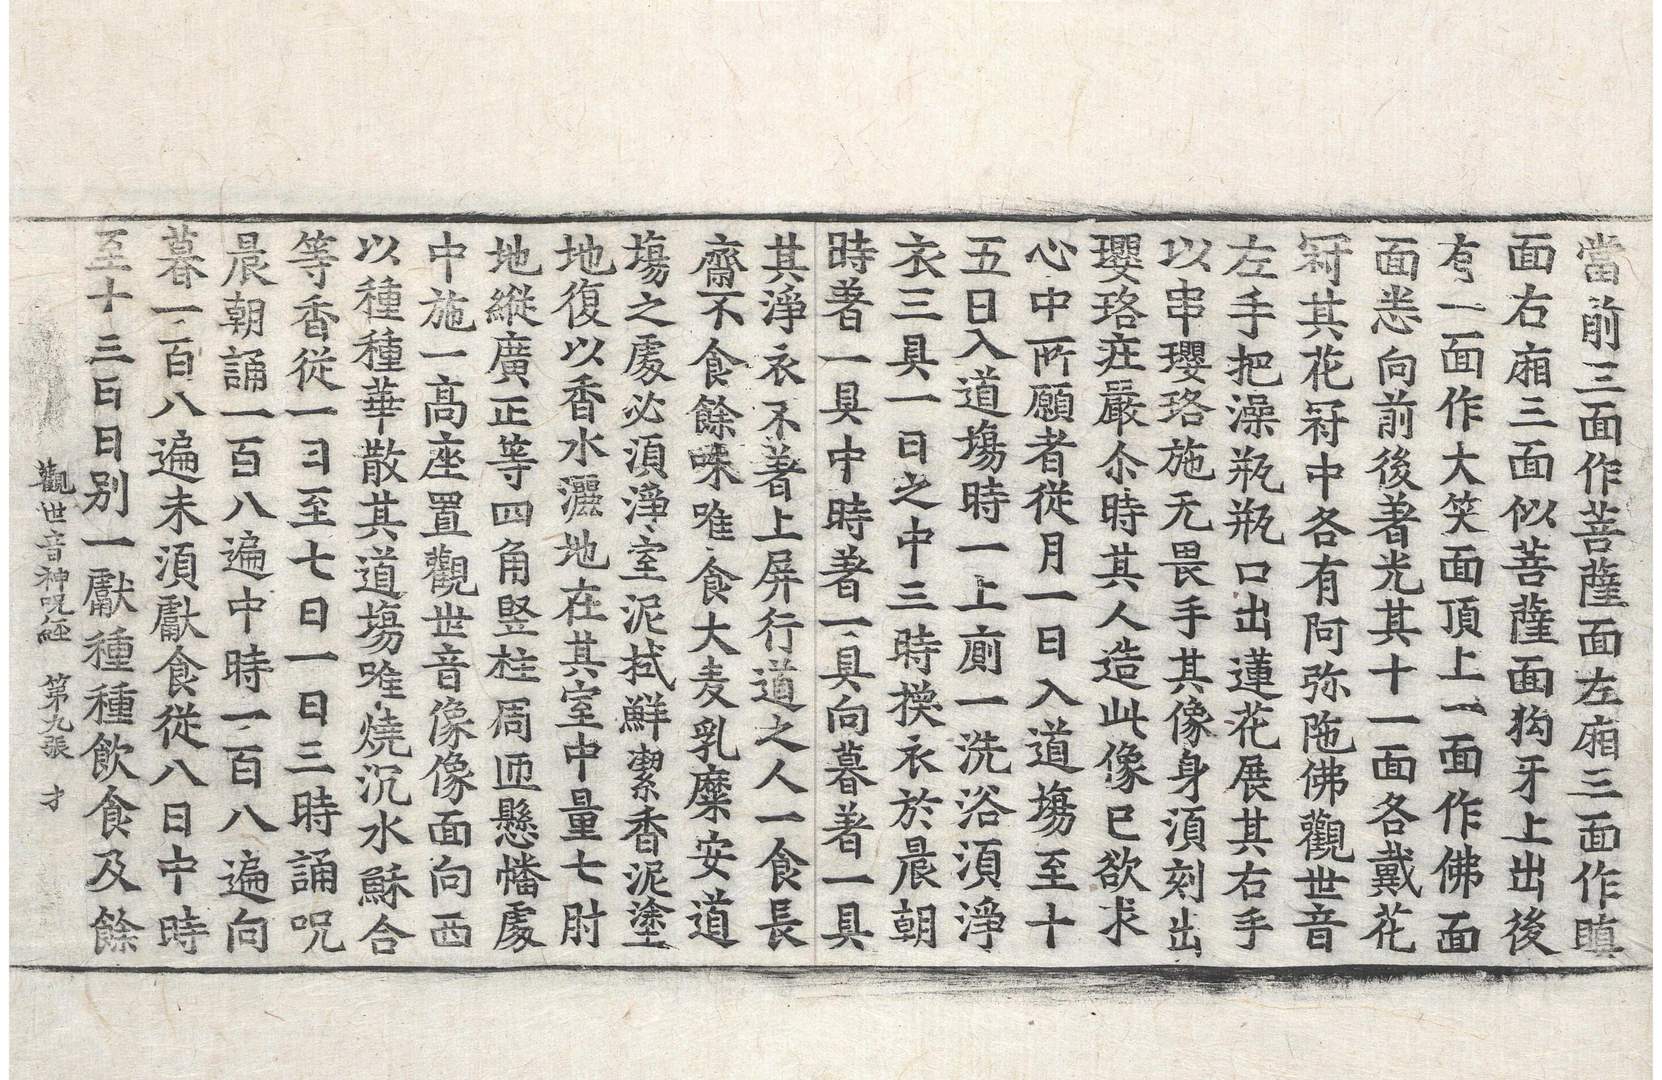 當前三面作菩薩面左廂三面作瞋
面右廂三面似菩薩面狗牙上出後
有一面作大笑面頂上一面作佛面
面悉向前後著光其十一面各戴花
冠其花冠中各有阿弥陁佛觀世音
左手把澡瓶瓶口出蓮花展其右手
以串瓔珞施无畏手其像身湏刻出
瓔珞莊嚴尒時其人造此像已欲求
心中所願者從月一日入道塲至十
五日入道塲時一上廁一洗浴湏淨
衣三具一日之中三時換衣於晨朝
時著一具中時著一具向暮著一具
其淨衣不著上屏行道之人一食長
齋不食餘味唯食大麦乳糜安道
塲之處必湏淨室泥拭鮮潔香泥塗
地復以香水灑地在其室中量七肘
地縱廣正等四角竪柱周迊懸幡處
中施一髙座置觀世音像像面向西
以種種華散其道塲唯燒沉水蘇合
等香從一日至七日一日三時誦呪
晨朝誦一百八遍中時一百八遍向
暮一百八遍未湏獻食從八日中時
至十三日日別一獻種種飲食及餘
觀世音神呪經 第九張 才